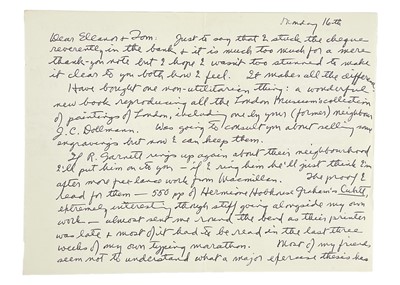 Sunday 16th
Dear Eleanor & Tom: Just to say that I stuck the cheque
reverently in the bank & it is much too much for a mere
thank-you note but I hope I wasn't too stunned to make
it clear to you both how I feel. It makes all the difference.
Have bought one non-utilitarian thing: a wonderful
new book reproducing all the London Museum's collection
of paintings of London, including one by your (former) neighbour
J.C. Dollmann. Was going to consult you about selling some
engravings but now I can keep them.
If R. Garnett rings up again about their neighbourhood
I'll put him on to you — if I ring him he'll just think I'm
after more freelance work from Macmillan. The proof I
read for them — 550 pp of Hermione Hobhouse Graham's Cubitt,
extremely interesting though stiff going alongside my own
work — almost sent me round the bend as their printer
was late & most of it had to be read in the last three
weeks of my own typing marathon. Most of my friends
seem not to understand what a major exercise thesis has